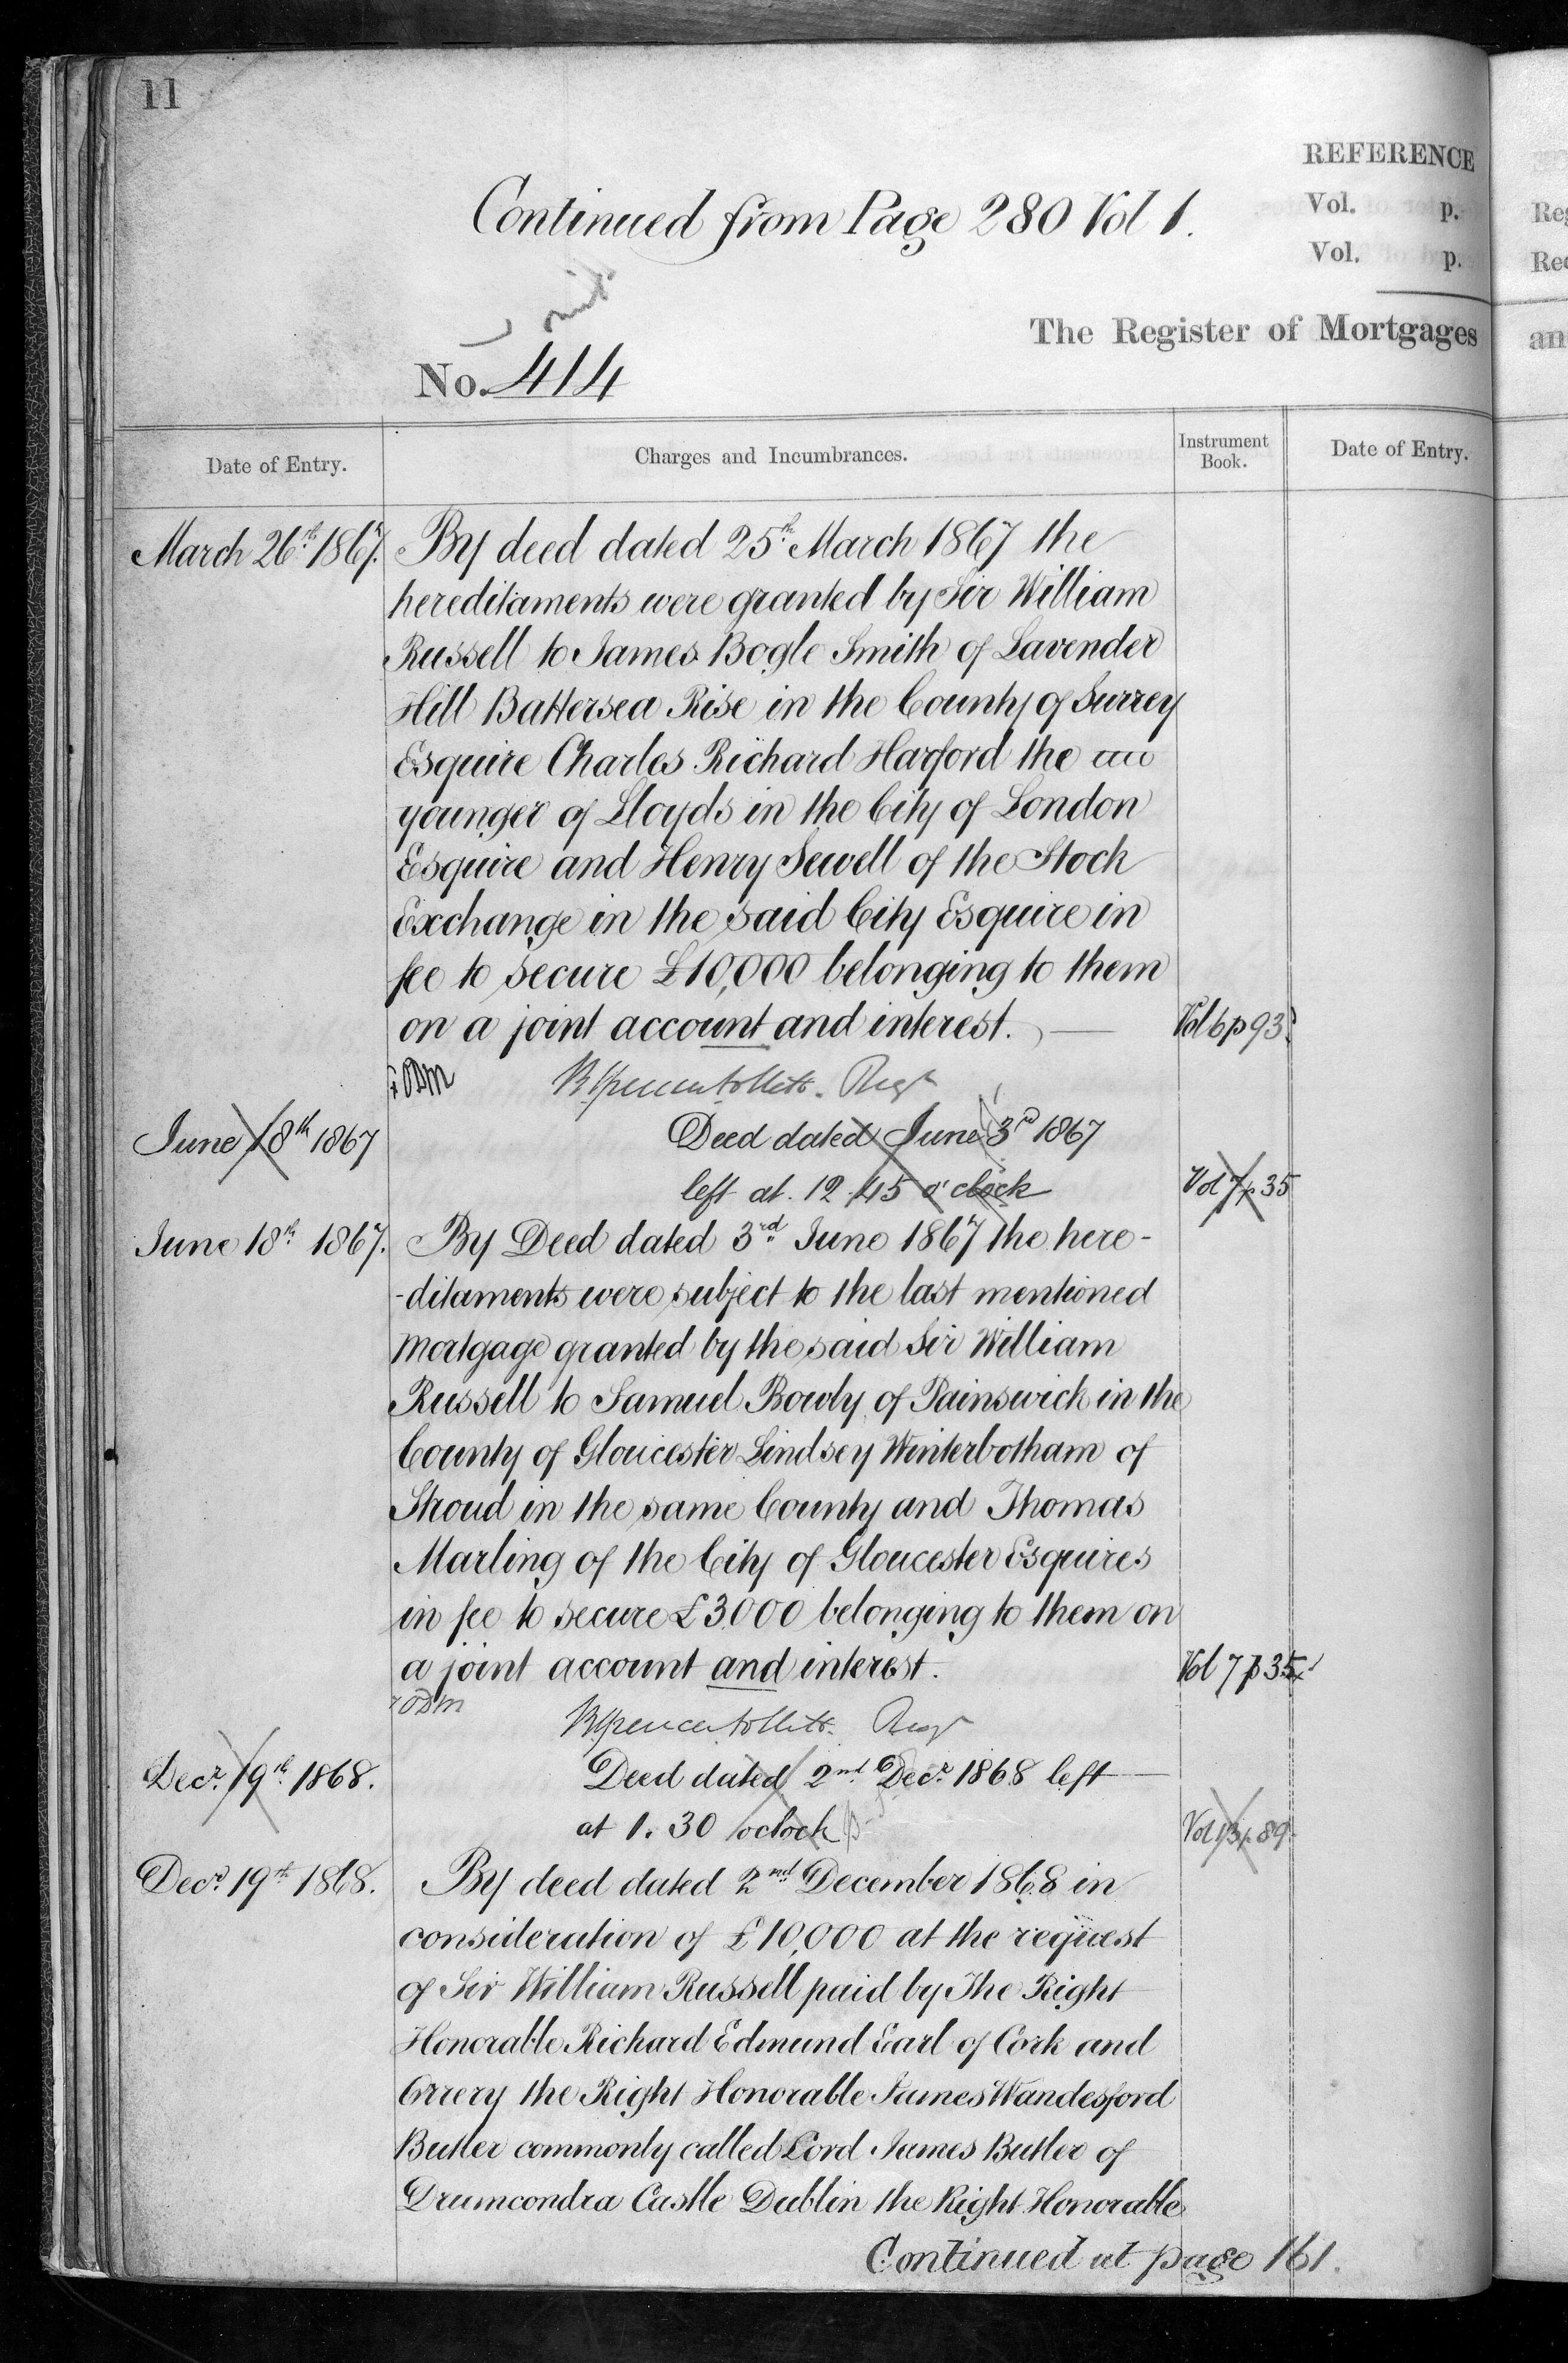 11
REFERENCE
Continued from Page 280 Vol 1.
Vol. p.
Vol. p.
The Register of Mortgages
No. 414
Date of Entry.
Charges and Incumbrances.
Instrument Book.
Date of Entry.
March 26th 1867. By deed dated 25th March 1867 the
hereditaments were granted by Sir William
Russell to James Bogle Smith of Lavender
Hill Battersea Rise in the County of Surrey
Esquire Charles Richard Harford the
younger of Lloyds in the City of London
Esquire and Henry Sewell of the Stock
Exchange in the said City Esquire in
fee to secure £10,000 belonging to them
on a joint account and interest. Vol 6 p 93
June 18th 1867 Deed dated June 3rd 1867
left at 12.45 o'clock Vol 7 p 35
June 18th 1867. By Deed dated 3rd June 1867 the here-
-ditaments were subject to the last mentioned
mortgage granted by the said Sir William
Russell to Samuel Bowly of Painswick in the
County of Gloucester Lindsey Winterbotham of
Stroud in the same County and Thomas
Marling of the City of Gloucester Esquires
in fee to secure £3000 belonging to them on
a joint account and interest. Vol 7 p 35
Decr. 19th 1868. Deed dated 2nd Decr. 1868 left
at 1.30 oclock Vol 13 p 89
Decr. 19th 1868. By deed dated 2nd December 1868 in
consideration of £10,000 at the request
of Sir William Russell paid by The Right
Honorable Richard Edmund Earl of Cork and
Orrery the Right Honorable James Wandesford
Butler commonly called Lord James Butler of
Drumcondra Castle Dublin the Right Honorable
Continued at page 161.
Reg
Rec
an